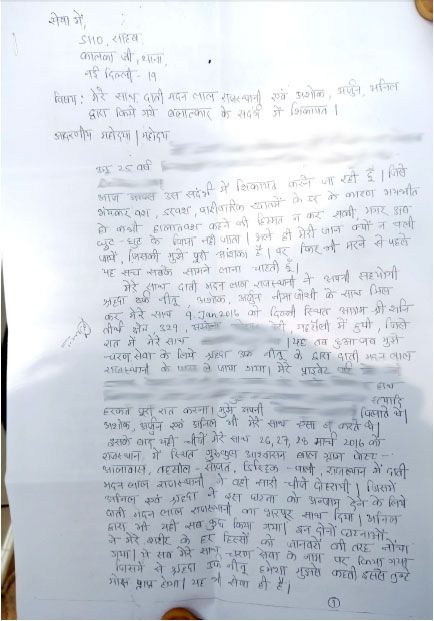 सेवा में,
SHO, साहिब
कालका जी, थाना,
नई दिल्ली - 19
विषय: मेरे साथ दाती मदन लाल राजस्थानी एवं अशोक, अर्जुन, अनिल
द्वारा किये गये बलात्कार के संदर्भ में शिकायत।
आदरणीय महोदया / महोदय
उम्र 25 वर्ष
आज आपको उस संदर्भ में शिकायत करने जा रही हूँ। जिसे
डरवश, पारीवारिक के डर के कारण भयभीत
कभी कहने की हिम्मत न कर सकी, मगर अब
घुट-घुट के जिया नहीं जाता। भले ही मेरी जान क्यों न चली
जाये, जिसकी मुझे पूरी आशंका है। पर फिर भी मरने से पहले
यह सच सबके सामने लाना चाहती हूँ।
मेरे साथ दाती मदन लाल राजस्थानी ने अपनी सहयोगी
श्रद्धा उर्फ नीतू, अशोक, अर्जुन नीमा जोशी के साथ मिल
कर मेरे साथ 9 Jan 2016 को दिल्ली स्थित आश्रम श्री शनि
तीर्थ क्षेत्र, 329, महरौली में हुयी, जिसे
रात में मेरे साथ यह तब हुआ जब मुझे
चरण सेवा के लिये श्रद्धा उर्फ नीतू के द्वारा दाती मदन लाल
राजस्थानी के पास ले जाया गया। मेरे प्राइवेट
हाथ
इत्यादि
हरकत पूरी रात करना। मुझे अपनी
अशोक, अर्जुन एवं अनिल भी मेरे साथ ऐसा ही करते थे।
इसके बाद यही चीजें मेरे साथ 26, 27, 28 मार्च 2016 को
राजस्थान में स्थित गुरुकुल आश्वासन बाल ग्राम
आलावास, तहसील - सोजत, डिस्ट्रिक - पाली, राजस्थान में दाती
मदन लाल राजस्थानी ने वही सारी चीजें दोहरायी। जिसमें
अनिल एवं श्रद्धा ने इस घटना को अन्जाम देने के लिये
दाती मदन लाल राजस्थानी का भरपूर साथ दिया। अनिल
द्वारा भी यही सब कुछ किया गया। इन दोनों घटनाओं
ने मेरे शरीर के हर हिस्सों को जानवरों की तरह नोंचा
गया। ये सब मेरे साथ चरण सेवा के नाम पर किया गया
जिसमें से श्रद्धा उर्फ नीतू हमेशा मुझसे कहती इससे तुम्हें
मोक्ष प्राप्त होगा। यह भी सेवा ही है।
①